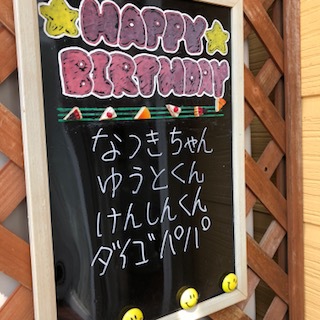 HAPPY
BIRTHDAY
なつきちゃん
ゆうとくん
けんしんくん
ダイゴパパ